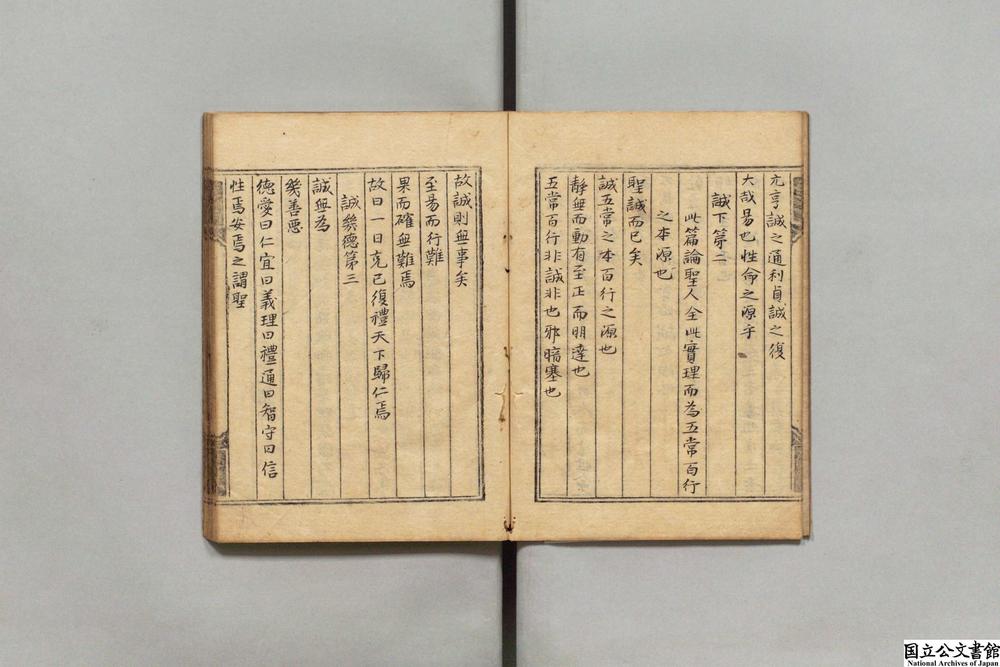 元亨誠之通利貞誠之復
大哉易也性命之源乎
誠下第二
此篇論聖人全此實理而為五常百行
之本源也
聖誠而已矣
誠五常之本百行之源也
靜無而動有至正而明達也
五常百行非誠非也邪暗塞也
故誠則無事矣
至易而行難
果而確無難焉
故曰一日克己復禮天下歸仁焉
誠幾德第三
誠無為
幾善惡
德愛曰仁宜曰義理曰禮通曰智守曰信
性焉安焉之謂聖
国立公文書館
National Archives of Japan